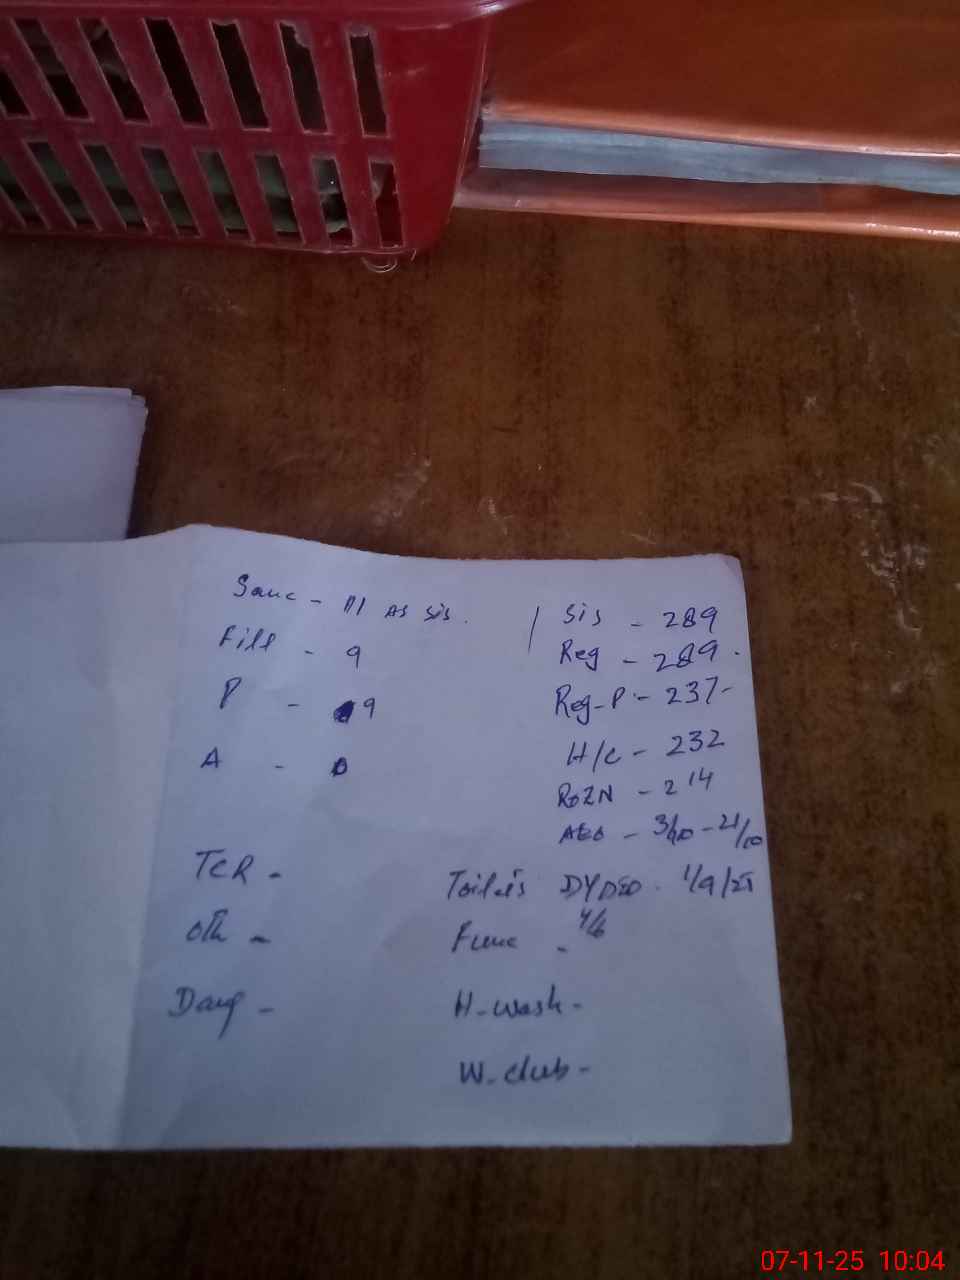 Sanc - 11 AS SiS.
Fill - 9
P - 9
A - 0
TCR -
Oth -
Dang -
SiS - 289
Reg - 289.
Reg-P - 237-
H/C - 232
ROZN - 214
AEO - 3/10 - 21/10
Toilets DYDEO - 1/9/25
Func -
H-wash -
W-club -
07-11-25 10:04